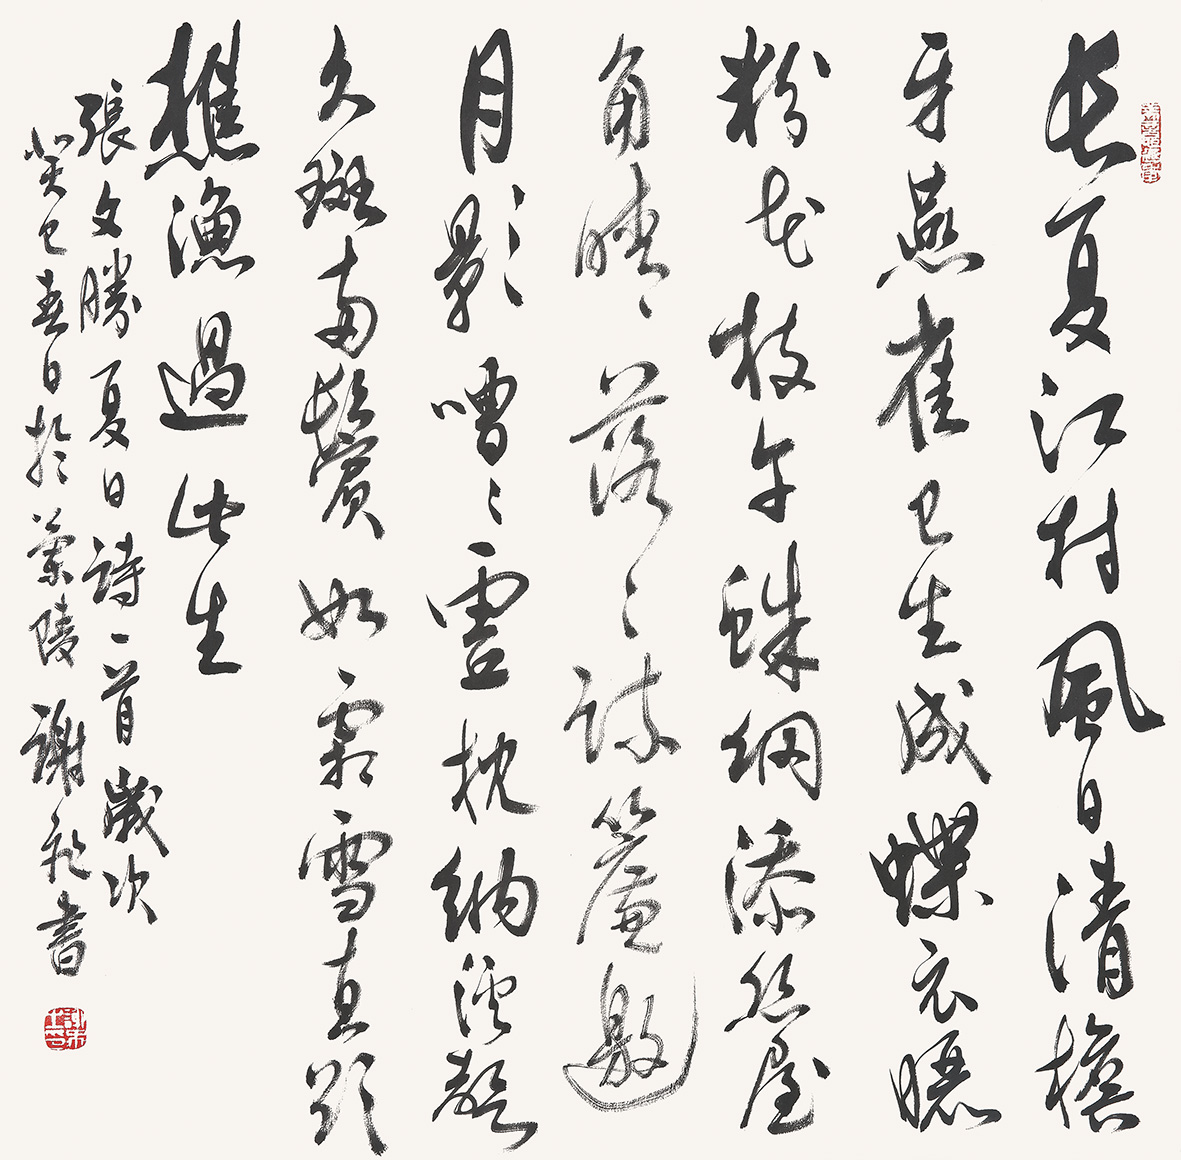 長夏江村風日清檐
牙燕雀已生成蝶衣曬
粉花枝午蛛網添絲屋
角晴落々疏簾邀
月影嘈々虛枕納溪聲
久斑兩鬢如霜雪直欲
樵漁過此生
張文勝夏日詩一首歲次
癸巳春日於蘭陵謝書